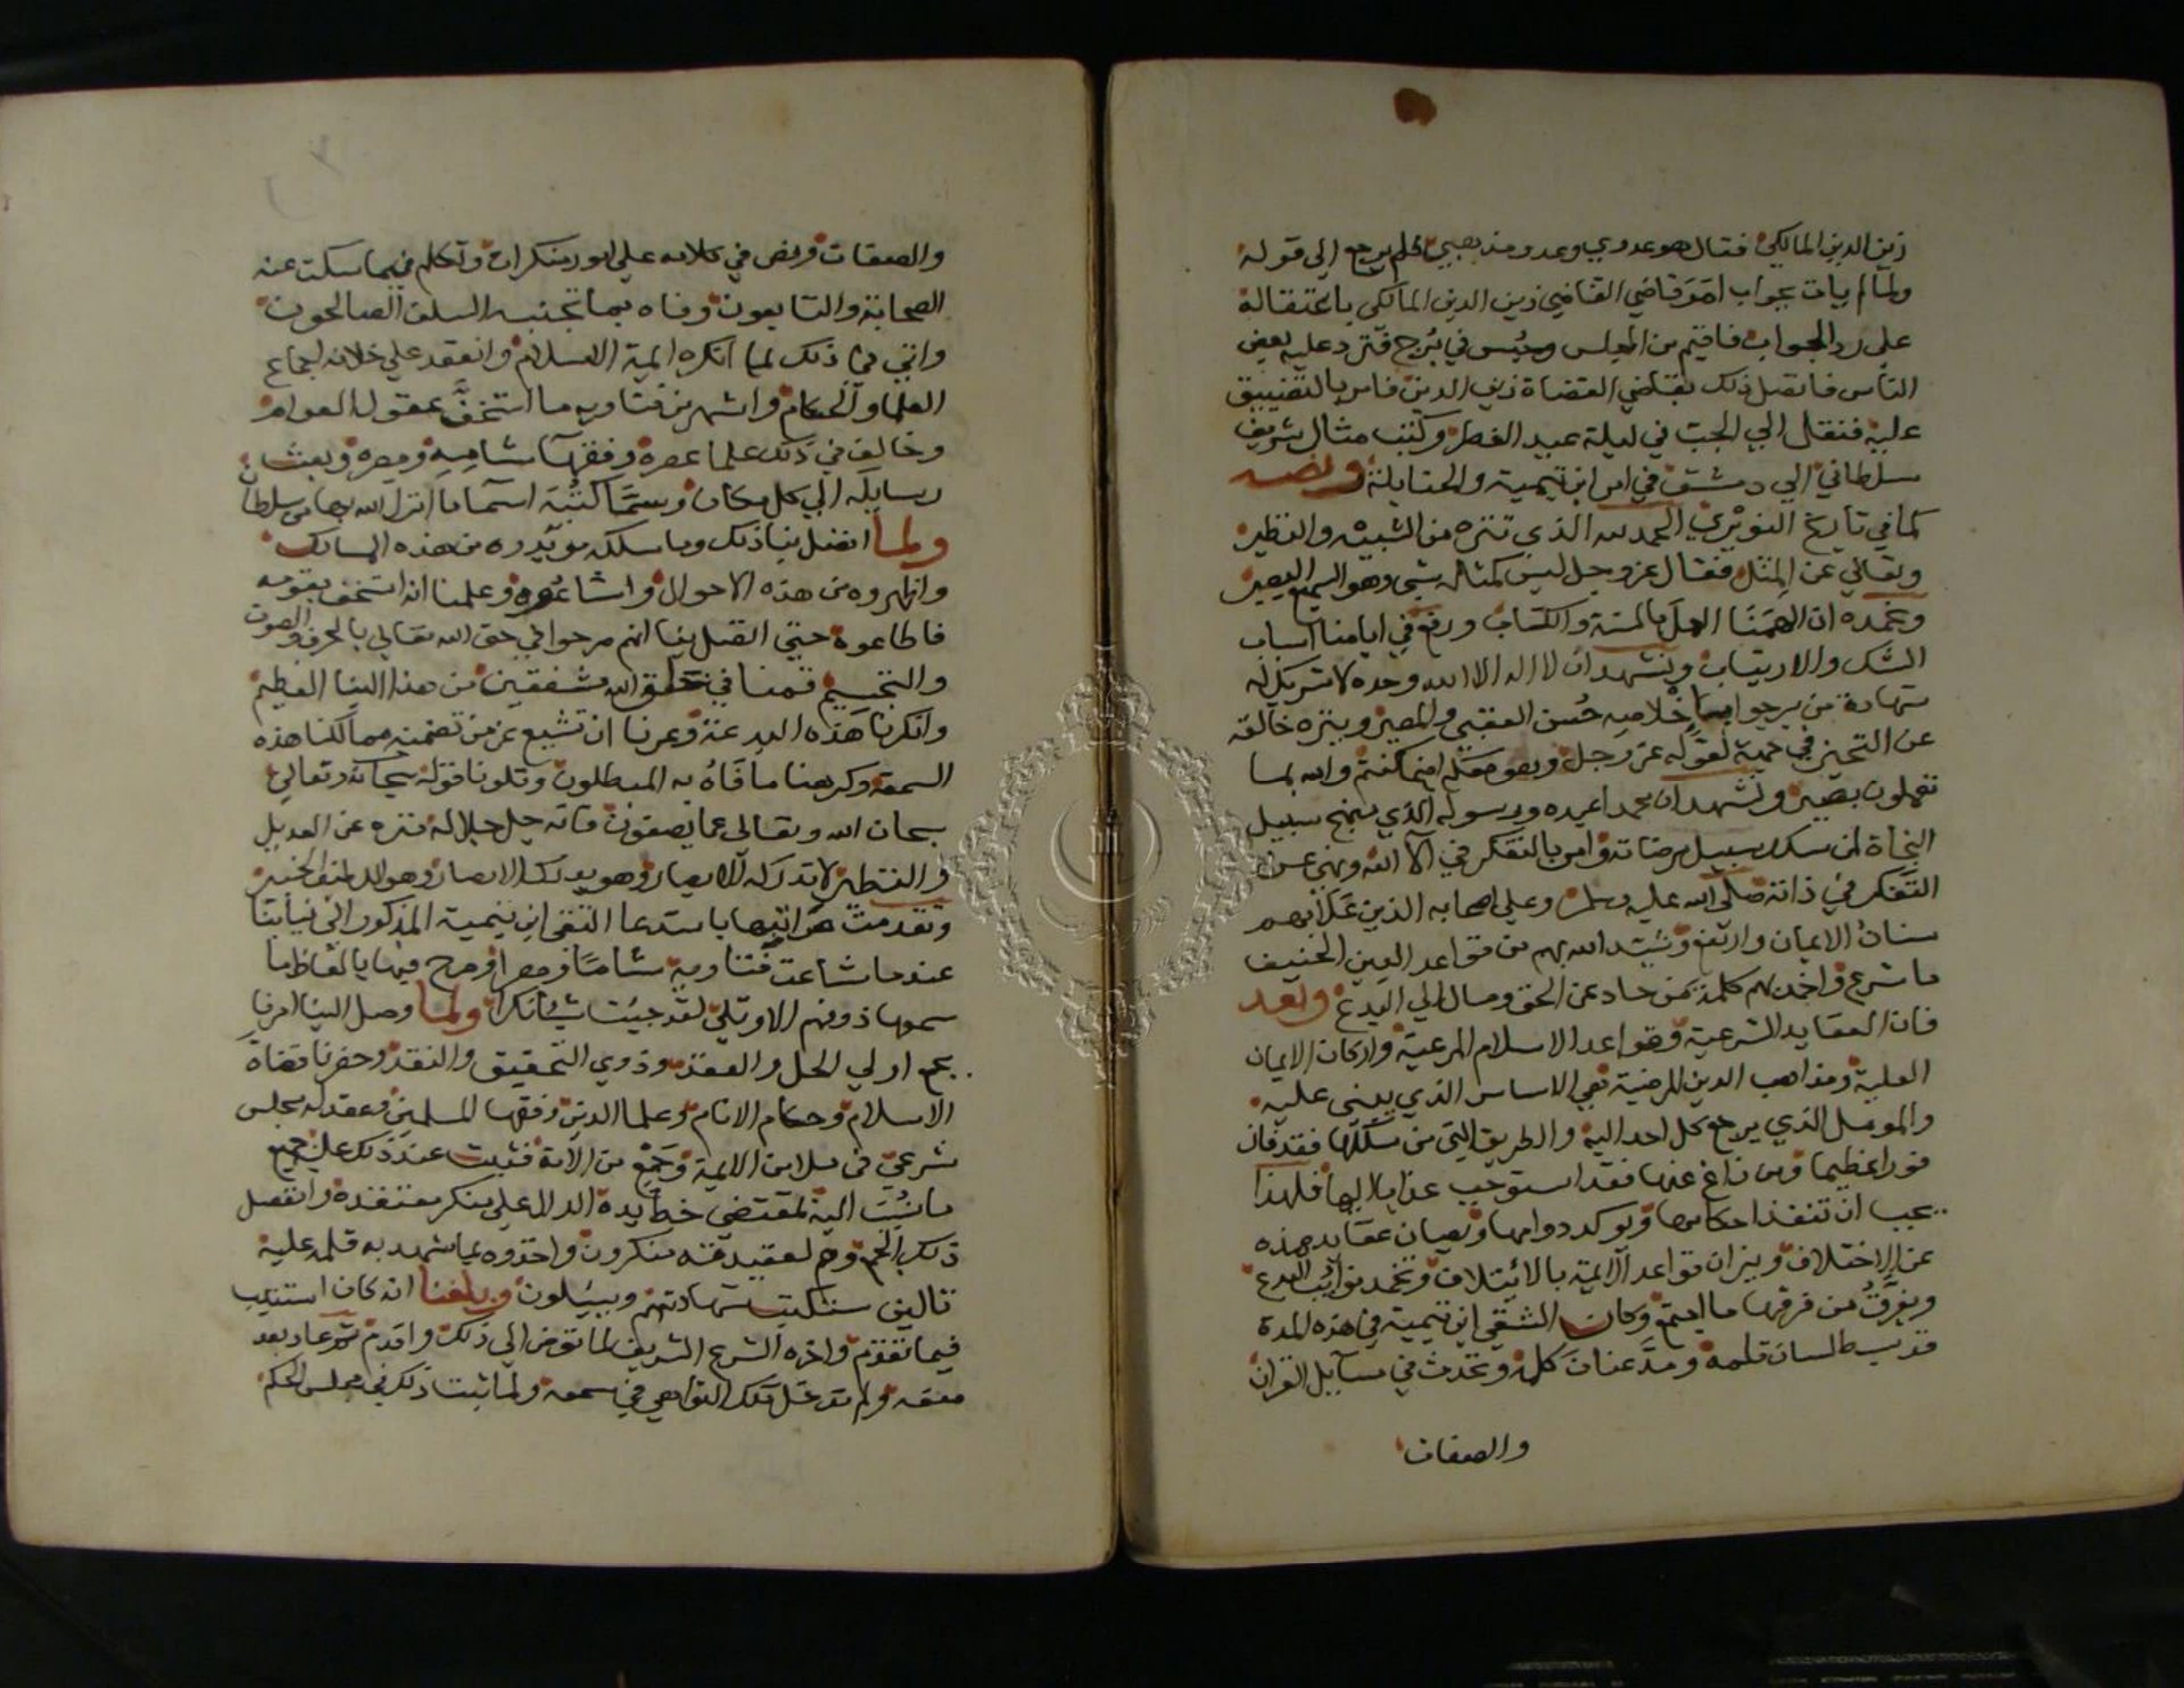 زين الدين المالكي فقال هو عدوي وعدو مذهبي فلم يرجع الى قوله
ولما لم يات بجواب امر قاضي القضاة زين الدين المالكي باعتقاله
على رد الجواب فاقيم من المجلس وحبس في برج فتردد عليه بعض
الناس فاتصل ذلك بقاضي القضاة زين الدين فامر بالتضييق
عليه فنقل الي الجب في ليلة عيد الفطر وكتب مثال شريف
سلطاني الي دمشق في امر ابن تيمية والحنابلة ونصه
كما في تاريخ النويري الحمد لله الذي تنزه عن الشبيه والنظير
وتعالي عن المثل فقال عز وجل ليس كمثله شي وهو السميع البصير
ونحمده ان الهمنا العمل بالسنة والكتاب ورفع في ايامنا اسباب
الشك والارتياب ونشهد ان لا اله الا الله وحده لا شريك له
شهادة من يرجوا باخلاصه حسن العقبي والمصير وينزه خالقه
عن التحيز في جهة لقوله عز وجل وهو معكم اينما كنتم والله بما
تعملون بصير ونشهد ان محمدا عبده ورسوله الذي نهج سبيل
النجاة لمن سلك سبيل مرضاته وامر بالتفكر في آلآ الله ونهي عن
التفكر في ذاته صلى الله عليه وسلم وعلي اصحابه الذين علا بهم
منار الايمان وارتفع وشيد الله بهم من قواعد الدين الحنيف
ما شرع واخمد بهم كلمة من حاد عن الحق ومال الي البدع وبعد
فان العقايد الشرعية وقواعد الاسلام المرعية واركان الايمان
العلية ومذاهب الدين المرضية هي الاساس الذي يبنى عليه
والموئل الذي يرجع كل احد اليه والطريق التي من سلكها فقد فاز
فوزا عظيما ومن زاغ عنها فقد استوجب عذابا اليما فلهذا
يجب ان تنفذ احكامها ويوكد دوامها وتصان عقايد هذه
عن الاختلاف وتزان قواعد الائمة بالائتلاف وتخمد نوائب البدع
ويفرق من فرقها ما اجتمع وكان الشقي ابن تيمية في هذه المدة
قد بسط لسان قلمه ومد عنان كلمه وتحدث في مسايل القران
والصفات
والصفات ونص في كلامه على امور منكرات وتكلم فيما سكت عنه
الصحابة والتابعون وفاه بما تجنبه السلف الصالحون
واتي في ذلك لما انكره ايمة الاسلام وانعقد علي خلافه اجماع
العلما والحكام واشهر من فتاويه ما استخف به عقول العوام
وخالف في ذلك علما عصره وفقها شامه ومصره وبعث
رسايله الي كل مكان وسما كتبه اسما ما انزل الله بها من سلطان
ولما اتصل بنا ذلك وما سلكه مريدوه من هذه المسالك
واظهروه من هذه الاحوال واشاعوه وعلمنا انه استخف بقومه
فاطاعوه حتي اتصل بنا انهم صرحوا في حق الله تعالي بالحرف والصوت
والتجسيم قمنا في حق الله مشفقين من هذا النبا العظيم
وانكرنا هذه البدعة وعزنا ان تشيع عن من تضمنه ممالكنا هذه
السمعة وكرهنا ما فاه به المبطلون وتلونا قوله سبحانه وتعالي
سبحان الله وتعالى عما يصفون فانه جل جلاله تنزه عن العديل
والنظير لا تدركه الابصار وهو يدرك الابصار وهو اللطيف الخبير
وتقدمت مراسيمنا باستدعا التقي ابن تيمية المذكور الى ابوابنا
عندما شاعت فتاويه شاما ومصرا وصرح فيها بالفاظ ما
سمعها ذو فهم الا وتلي لقد جيت شيا نكرا ولما وصل الينا امرنا
بجمع اولي الحل والعقد وذوي التحقيق والنقد وحضرنا قضاة
الاسلام وحكام الانام وعلما الدين وفقها المسلمين وعقد له مجلس
شرعي في ملا من الايمة وجمع من الامة فثبت عند ذلك عليه جميع
ما نسب اليه بمقتضي خط يده الدال علي منكر معتقده وانفصل
ذلك الجمع وهم لعقيدته منكرون واخذوه بما شهد به قلمه عليه
تالين ستكتب شهادتهم ويسئلون وبلغنا انه كان استتيب
فيما تقدم واخره الشرع الشريف لما تعرض الي ذلك واقدم ثم عاد بعد
منعه ولم تدخل تلك النواهي في سمعه ولما ثبت ذلك في مجلس الحكم